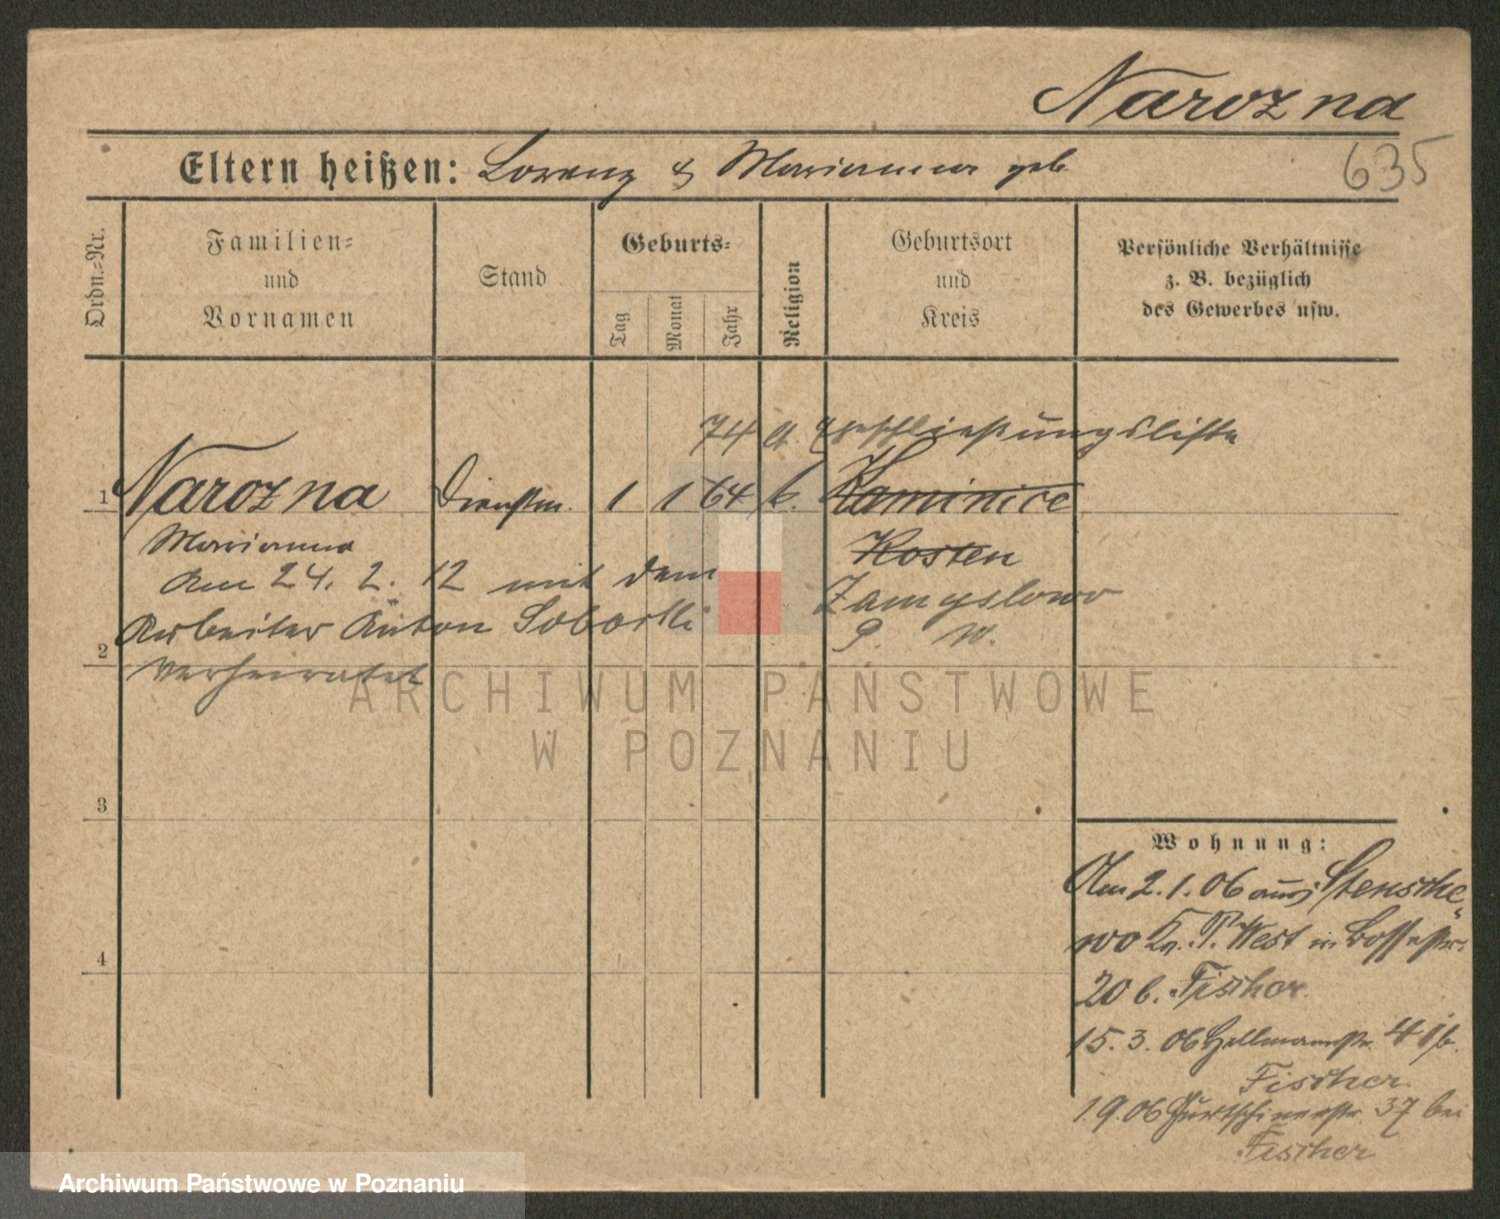 Narozna
635
Eltern heißen: Lorenz & Marianna geb.
Ordn.-Nr.
Familien- und Vornamen
Stand
Geburts-
Tag
Monat
Jahr
Religion
Geburtsort und Kreis
Persönliche Verhältnisse z. B. bezüglich des Gewerbes usw.
74 lt. Eheschließungsliste
1 Narozna Dienstm. 1 1 64 k. Kaminice
Marianna Kosten
Am 24. 2. 12 mit dem Zamyslowo
Arbeiter Anton P. W.
2 verheiratet
3
4
Wohnung:
Am 2.1.06 aus Stensche-
wo Kr. P. West in
20 b. Fischer
15.3.06 Hellmannstr. 4 b.
Fischer
1.9.06 37 bei
Fischer
ARCHIWUM PAŃSTWOWE
W POZNANIU
Archiwum Państwowe w Poznaniu